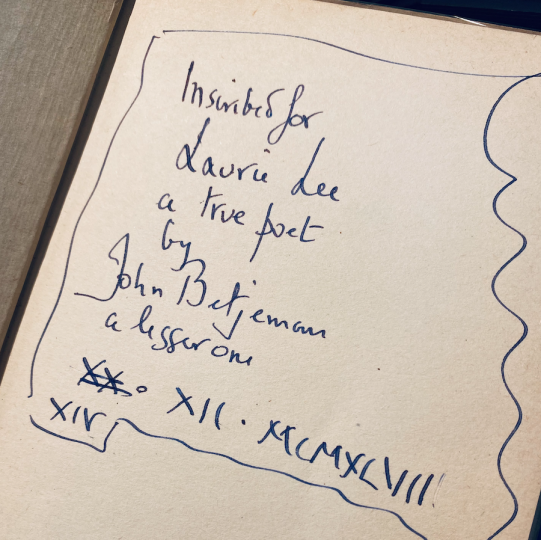 Inscribed for
Laurie Lee
a true poet
by
John Betjeman
a lesser one
XX. XII. MCMXLVIII
XIV